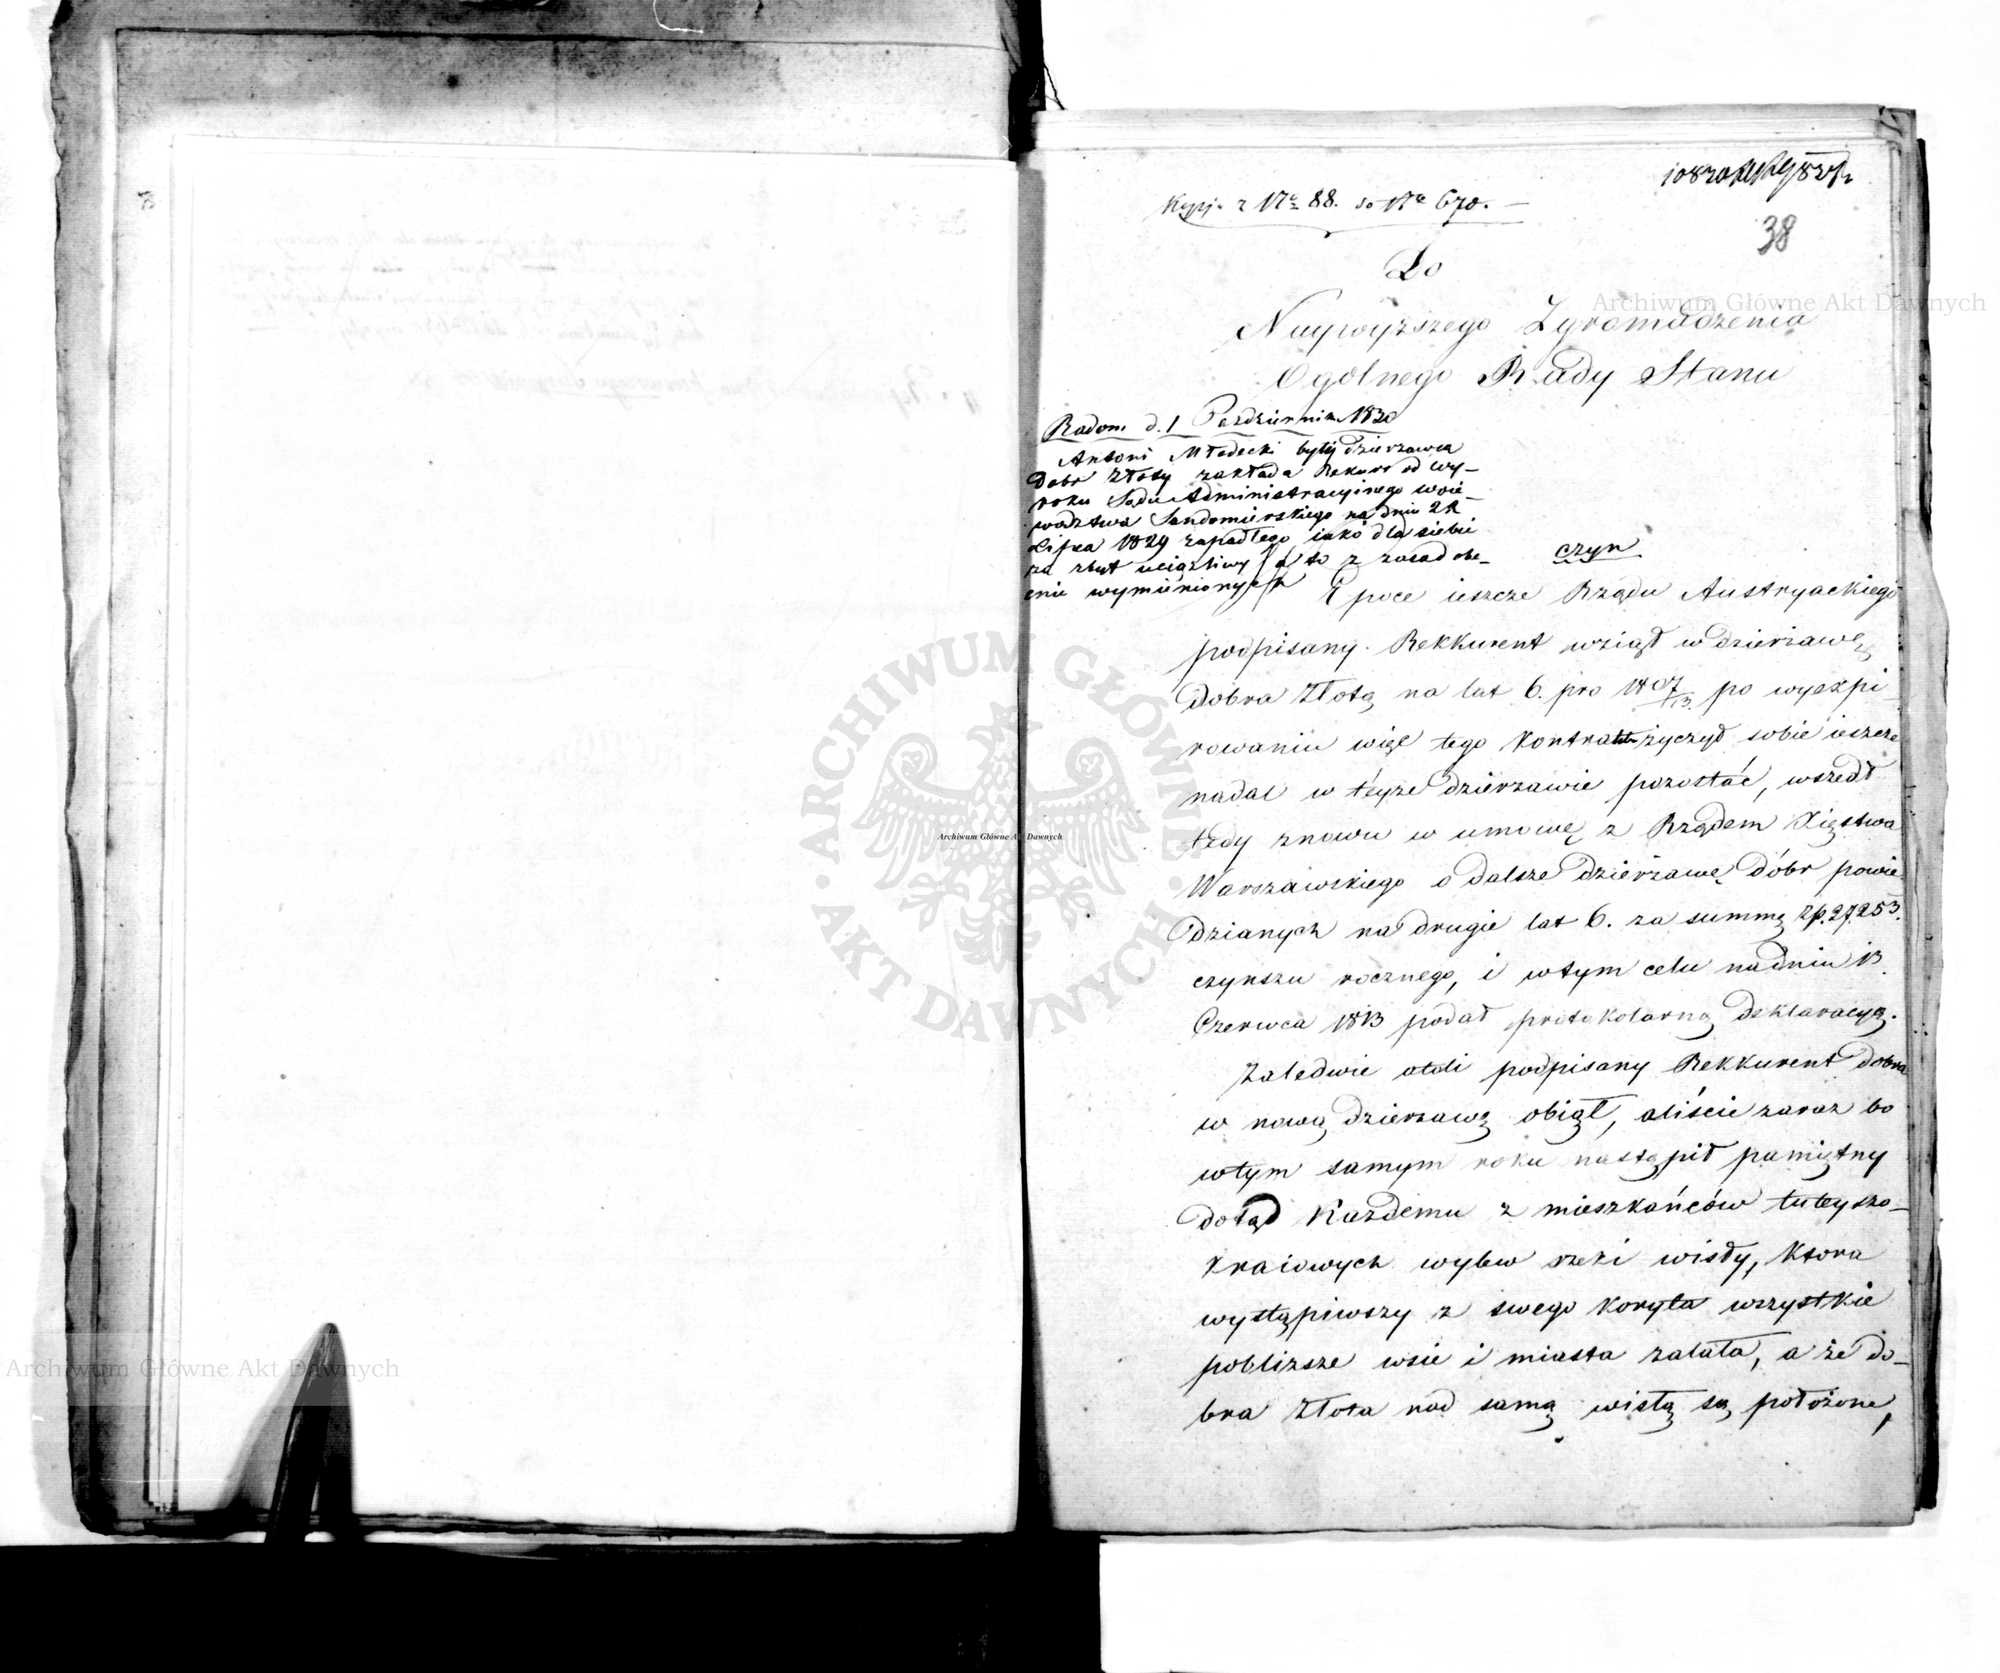 38
Kopja z Nº 88. do Nº 670.
Do
Naywyższego Zgromadzenia
Ogolnego Rady Stanu
Radom d. 1 Pazdziernika 1830
Antoni Młodecki byłÿ dzierzawca
Dobr Złoty zakłada Rekurs od wy-
roku Sądu Administracyinego woie-
wodztwa Sandomirskiego na dniu 28
Lipca 1829 zapadłego iako dla siebie
za zbyt uciążliwy a to z zasad obe-
cnie wymienionych
czyn
Epoce ieszcze Rządu Austryackiego
podpisany Rekkurent wziął w dzierzawę
Dobra Złotą na lat 6. pro 1807/13. po wyexpi-
rowaniu więc tego Kontraktu życzył sobie ieszcze
nadal w téyze dzierzawie pozostać, wszedł
tedy znowu w umowę z Rządem Xięstwa
Warszawskiego o dalsze dzierżawę dóbr powie
dzianych na drugie lat 6. za summę Zp. 27,253.
czynszu rocznego, i w tym celu na dniu 13
Czerwca 1813 podał protokolarną deklaracyą.
Zaledwie atoli podpisany Rekkurent dobra
w nową dzierzawę obiął, aliście zaraz bo
w tym samym roku nastąpił pamiętny
dotąd Kazdemu z mieszkańców tuteyszo-
kraiowych wylew rzeki wisły, Ktora
wystąpiwszy z swego Koryta wszystkie
poblizsze wsie i miasta zalała, a że do-
bra Złota nad samą wisłą są położone,
Archiwum Główne Akt Dawnych
Archiwum Główne Akt Dawnych
Archiwum Główne Akt Dawnych
ARCHIWUM GŁÓWNE · AKT DAWNYCH ·